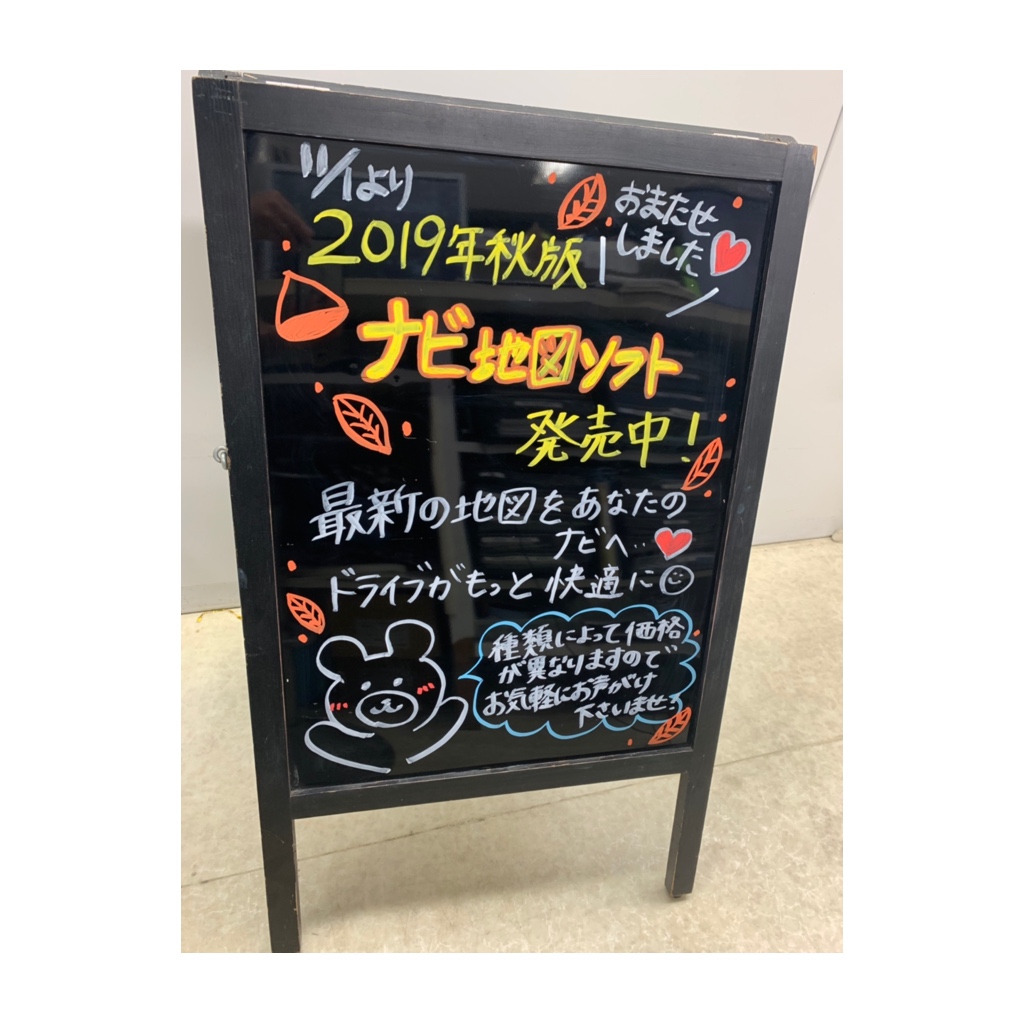 11/1より
おまたせ
しました
2019年秋版
ナビ地図ソフト
発売中!
最新の地図をあなたの
ナビへ‥
ドライブがもっと快適に
種類によって価格
が異なりますので
お気軽にお声がけ
下さいませ♪